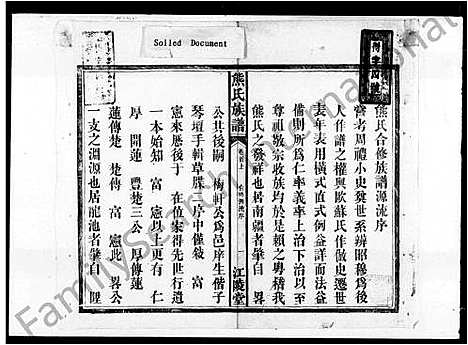 Soiled Document
熊氏合修族譜源流序
嘗考周禮小史奠世系辨昭穆為後
人作譜之權輿歐蘇氏作倣史遷世
表年表用橫式直式例益詳而法益
備則所為仁率義率上治下治以至
尊祖敬宗收族均於是賴之粵稽我
熊氏之發祥也居南疆者肇自畧
熊氏族譜
卷首上
江陵堂
公其後嗣 梅軒公為邑庠生偕子
琴壇手輯草牒一序中僅敍 富
憲來歷後于 在位案得先世行遺
一本始知 富 憲以上更有 仁
厚 開蓮 豐楚三公 厚傳蓮
蓮傳楚 楚傳 富 憲此 畧公
一支之淵源也居龍池者肇自 陞
FamilySearch International